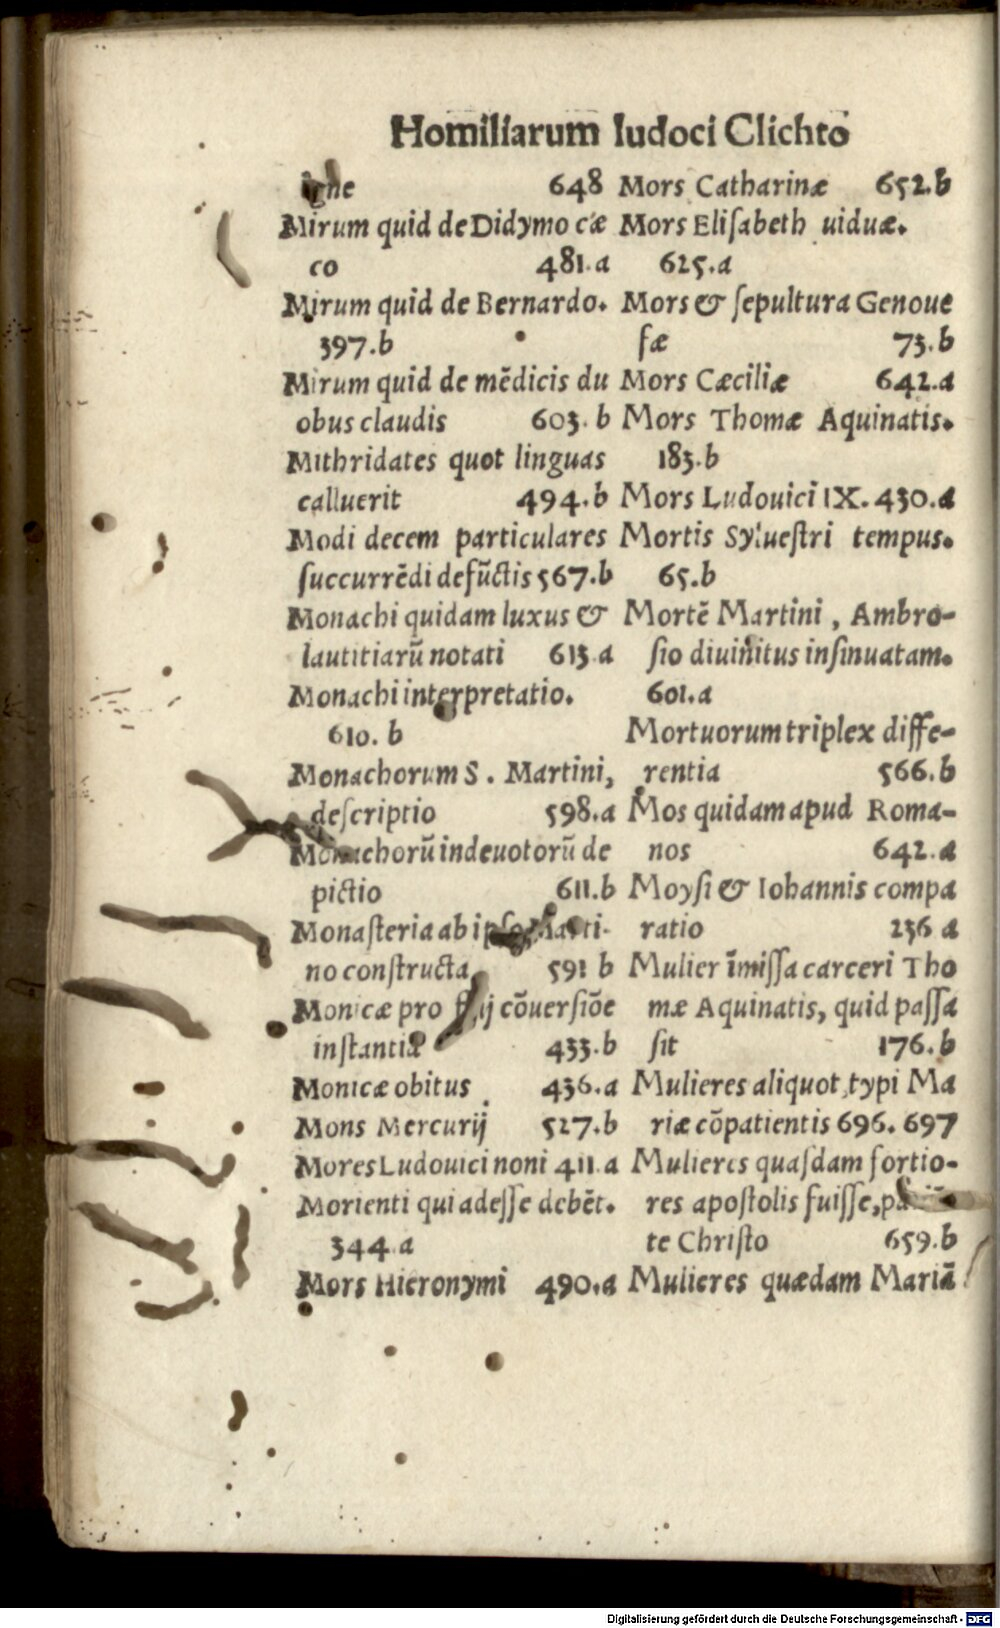 Homiliarum Iudoci Clichto
igne 648
Mirum quid de Didymo cæ
co 481.a
Mirum quid de Bernardo.
397.b
Mirum quid de mēdicis du
obus claudis 603.b
Mithridates quot linguas
calluerit 494.b
Modi decem particulares
ſuccurrēdi defūctis 567.b
Monachi quidam luxus &
lautitiarū notati 613.a
Monachi interpretatio.
610.b
Monachorum S. Martini,
deſcriptio 598.a
Monachorū indeuotorū de
pictio 611.b
Monaſteria ab ipſo Marti-
no conſtructa 591 b
Monicæ pro filij cōuerſiōe
inſtantia 433.b
Monicæ obitus 436.a
Mons Mercurij 527.b
Mores Ludouici noni 411.a
Morienti qui adeſſe debēt.
344.a
Mors Hieronymi 490.a
Mors Catharinæ 652.b
Mors Eliſabeth uiduæ.
625.a
Mors & ſepultura Genoue
fæ 73.b
Mors Cæciliæ 642.a
Mors Thomæ Aquinatis.
183.b
Mors Ludouici IX. 430.a
Mortis Sylueſtri tempus.
65.b
Mortē Martini, Ambro-
ſio diuinitus inſinuatam.
601.a
Mortuorum triplex diffe-
rentia 566.b
Mos quidam apud Roma-
nos 642.a
Moyſi & Iohannis compa
ratio 236 a
Mulier īmiſſa carceri Tho
mæ Aquinatis, quid paſſa
ſit 176.b
Mulieres aliquot, typi Ma
riæ cōpatientis 696. 697
Mulieres quaſdam fortio-
res apoſtolis fuiſſe,
te Chriſto 659.b
Mulieres quædam Mariā
Digitalisierung gefördert durch die Deutsche Forschungsgemeinschaft - DFG